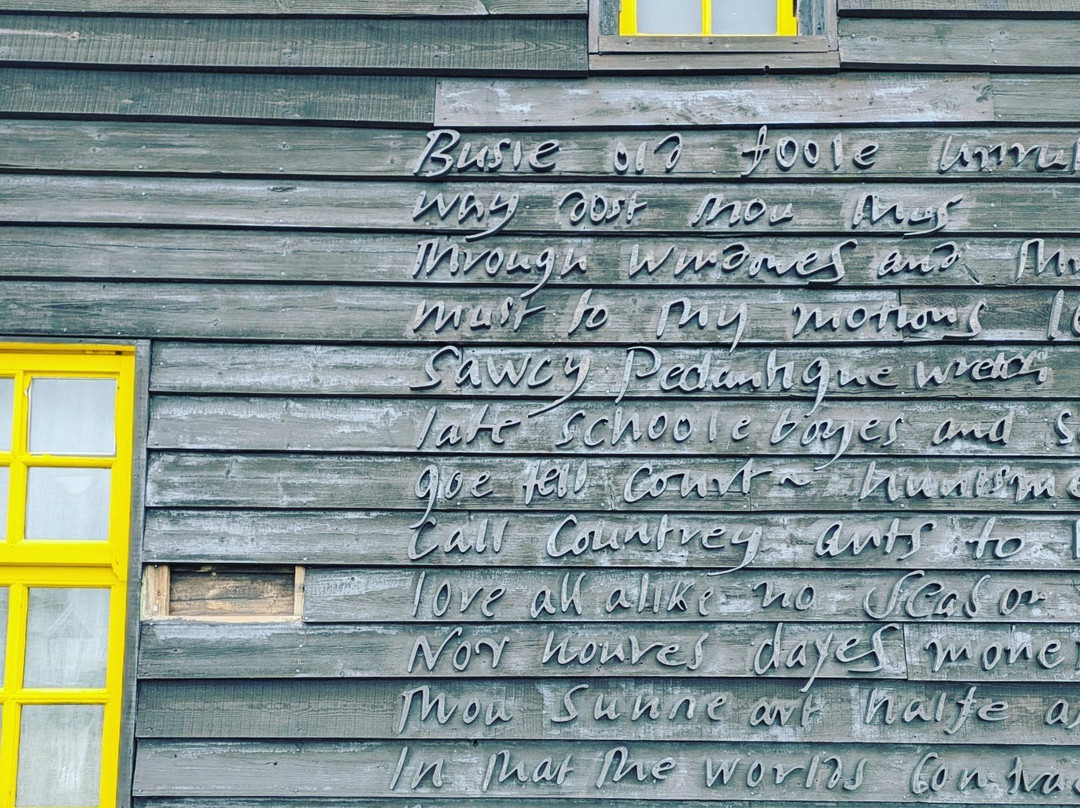 Busie old foole unrul
why dost thou thus
Through windowes and th
must to thy motions l
Sawcy Pedantique wretch
late schoole boyes and s
goe tell Court ~ huntsme
Call Countrey ants to
love all alike no season
Nor houres dayes mone
Thou Sunne art halfe a
In that the worlds contrac